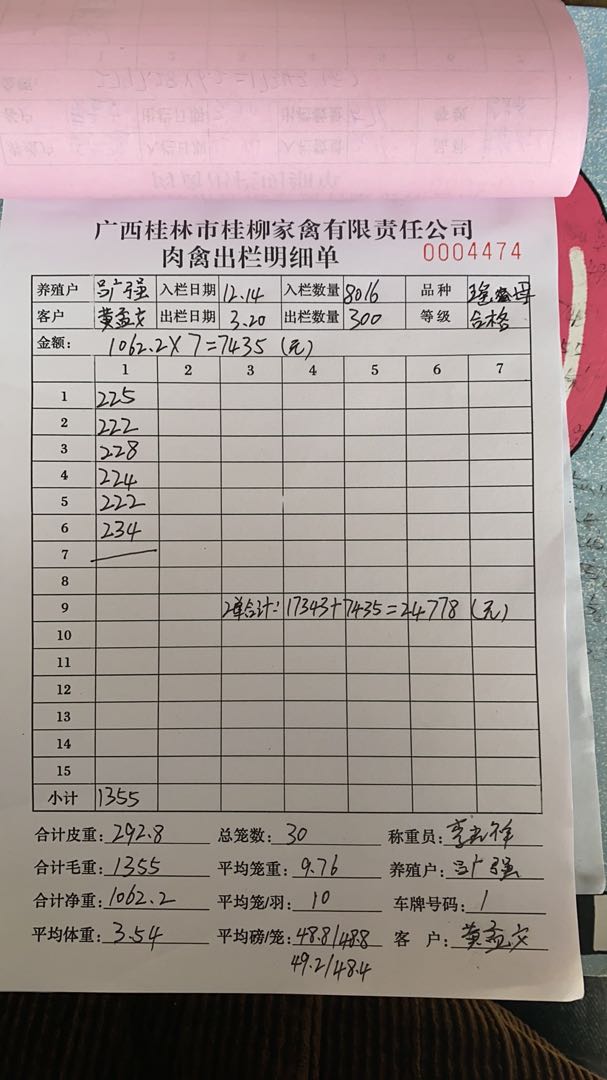 广西桂林市桂柳家禽有限责任公司
肉禽出栏明细单 0004474
养殖户 吕广强 入栏日期 12.14 入栏数量 8016 品种
客户 黄孟文 出栏日期 3.20 出栏数量 300 等级 合格
金额: 1062.2×7=7435 (元)
1 2 3 4 5 6 7
1 225
2 222
3 228
4 224
5 222
6 234
7
8
9 2单合计: 17343+7435=24778 (元)
10
11
12
13
14
15
小计 1355
合计皮重: 292.8 总笼数: 30 称重员:
合计毛重: 1355 平均笼重: 9.76 养殖户: 吕广强
合计净重: 1062.2 平均笼/羽: 10 车牌号码: 1
平均体重: 3.54 平均磅/笼: 48.8/48.8 客 户: 黄孟文
49.2/48.4